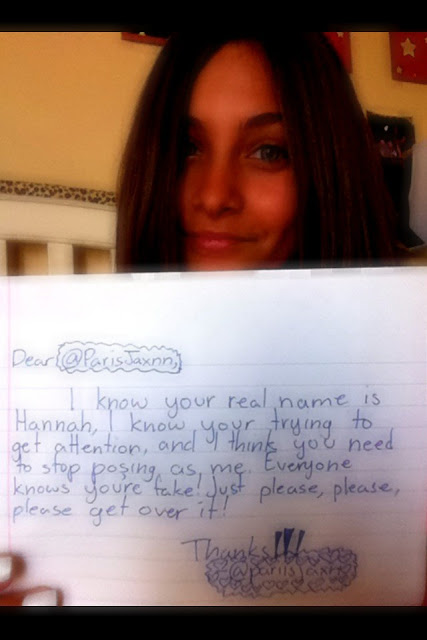 Dear @ParisJaxnn,
I know your real name is
Hannah, I know your trying to
get attention, and I think you need
to stop posing as me. Everyone
knows you're fake! Just please, please,
please get over it!
Thanks!!!
@pariisjaxn